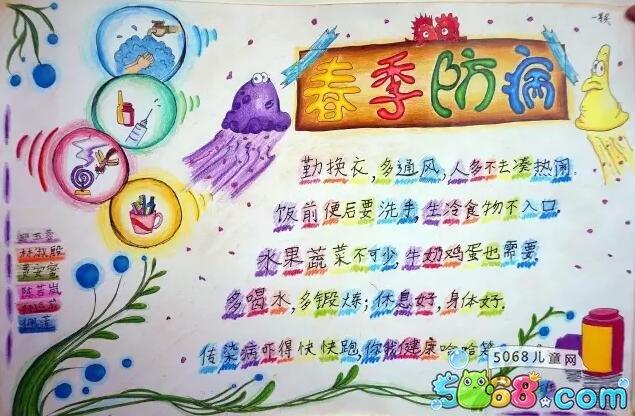 春季防病
勤换衣,多通风,人多不去凑热闹.
饭前便后要洗手,生冷食物不入口.
水果蔬菜不可少,牛奶鸡蛋也需要.
多喝水,多锻炼;休息好,身体好.
传染病吓得快快跑,你我健康哈哈笑
5068儿童网
5068.com